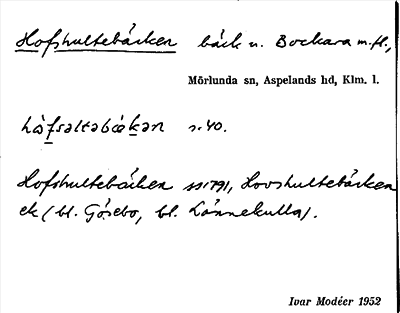 Hofshultebäcken bäck n. Bockara m.fl.,
Mörlunda sn, Aspelands hd, Klm. l.
hȯfsəltəbækən s.40.
Hofshultebäcken 1791, Hovshultebäcken
ek (bl. Gösebo, bl. Lönnekulla).
Ivar Modéer 1952